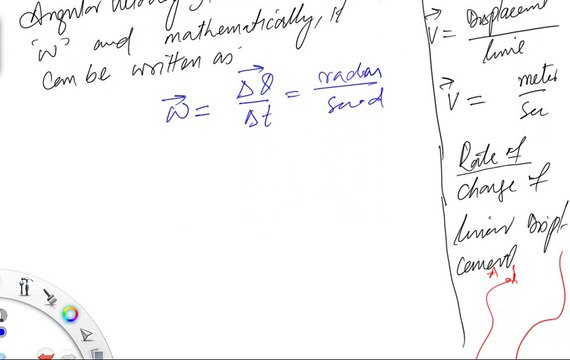 Angular
"ω" and mathematically, it
can be written as
ω⃗ = Δθ⃗ / Δt = radian / second
V⃗ = Displacement / time
V⃗ = meter / sec
Rate of
change of
linear Displ-
cement
A